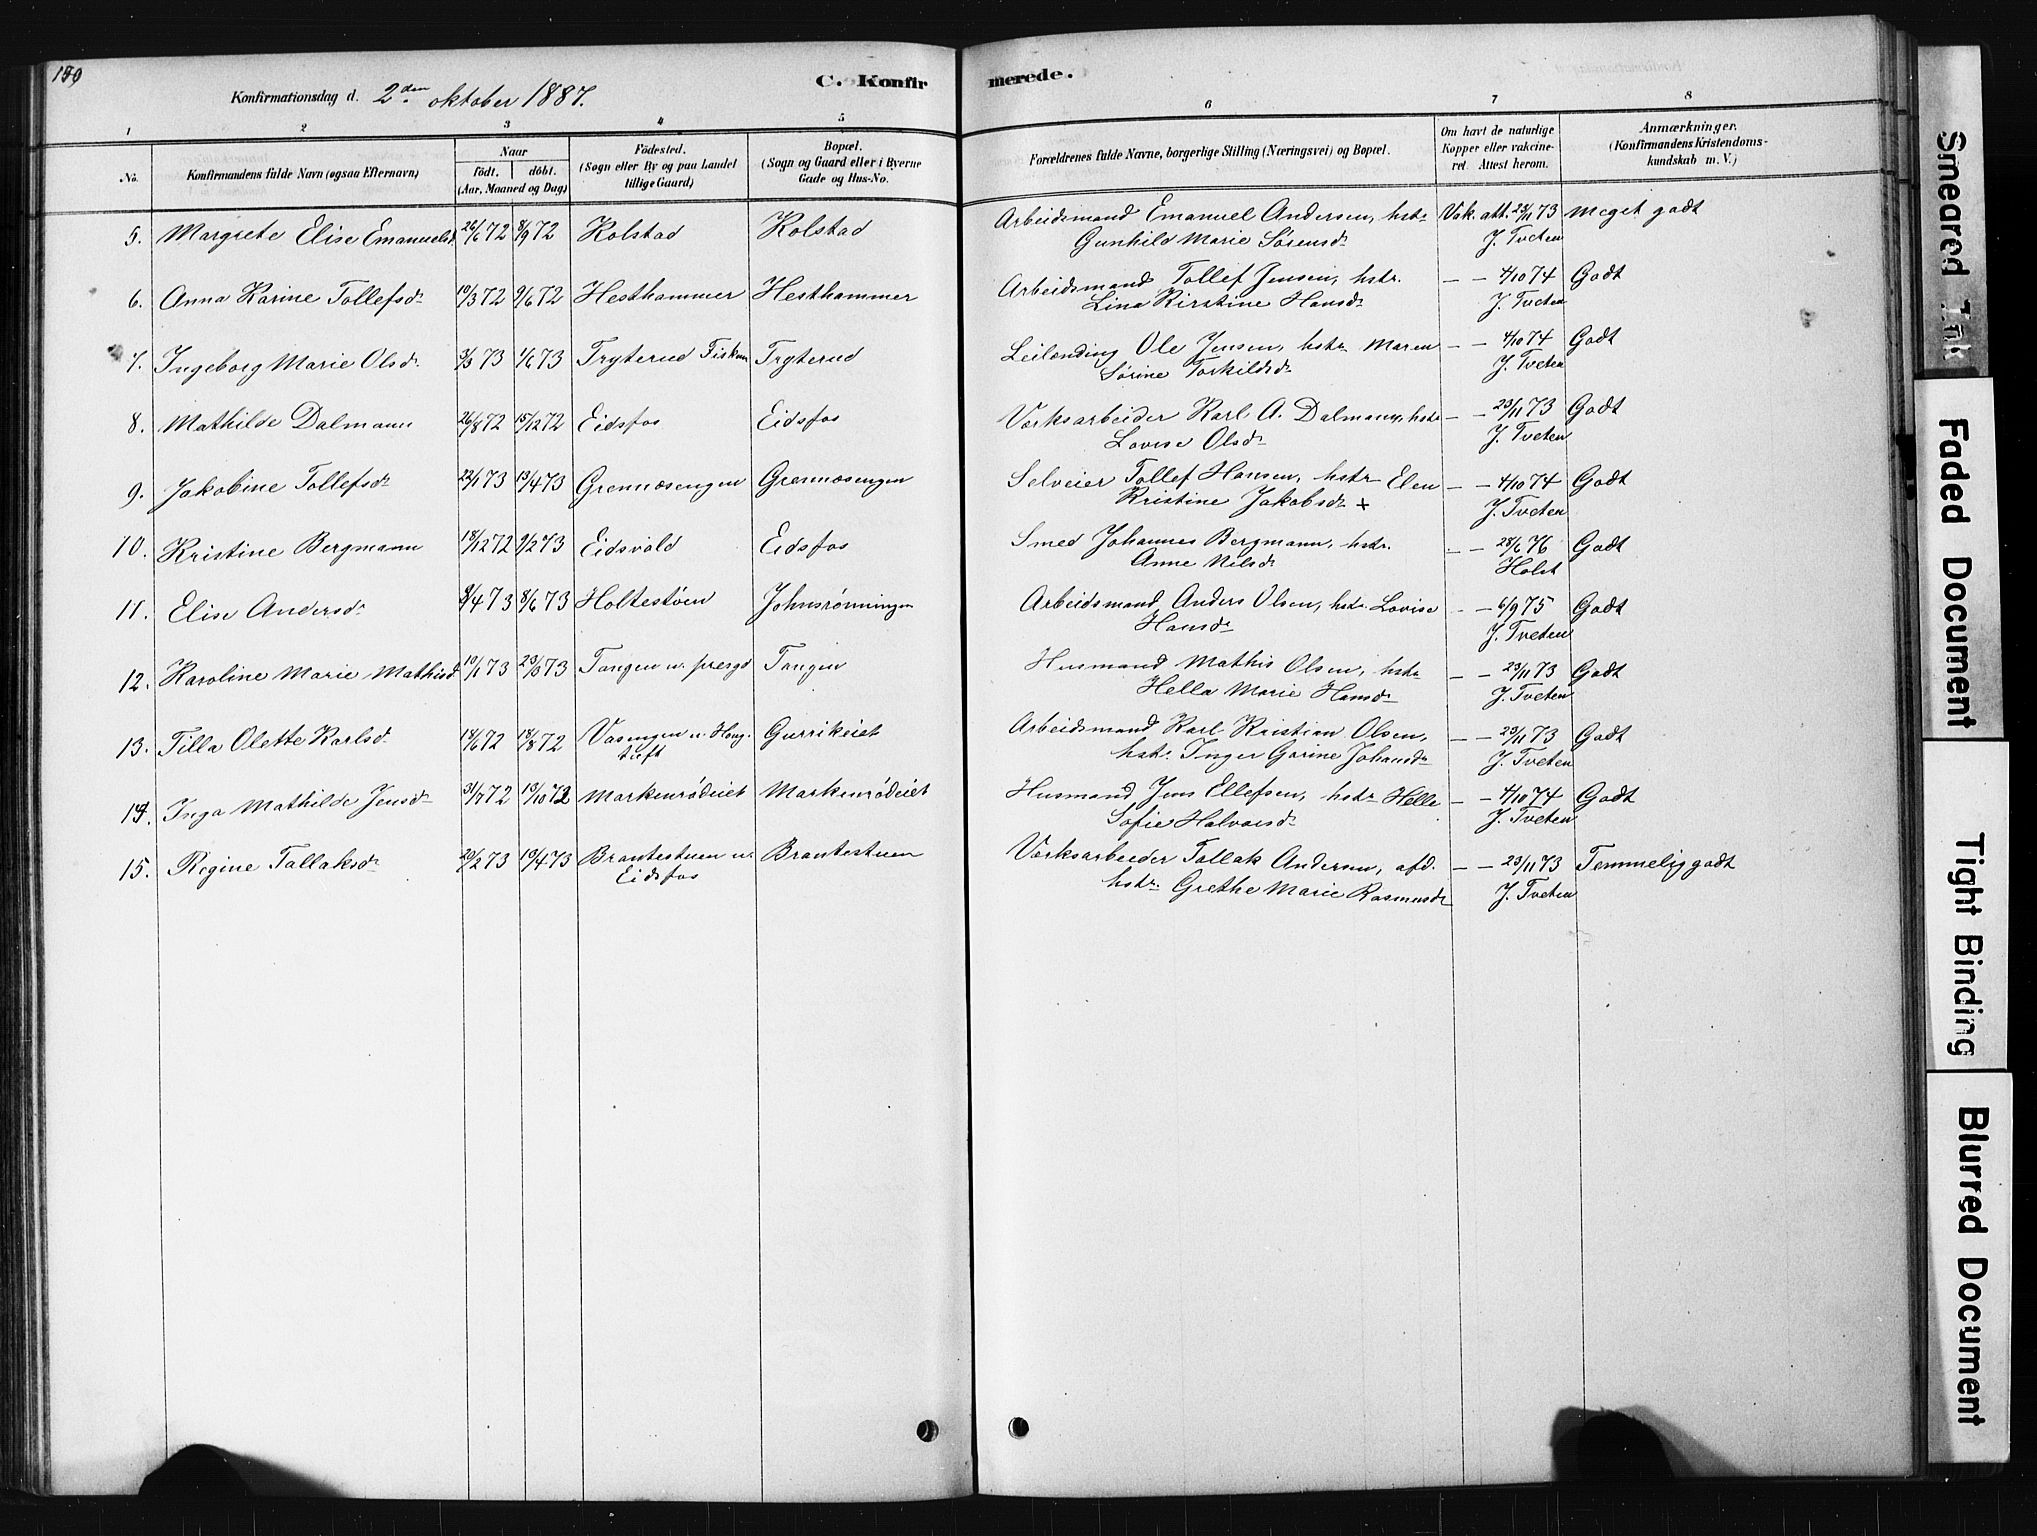 150
Konfirmationsdag d. 2den oktober 1887.
C. Konfirmerede.
1 2 3 4 5 6 7 8
No.
Konfirmandens fulde Navn (ogsaa Efternavn)
Naar
födt. döbt.
(Aar, Maaned og Dag)
Födested.
(Sogn eller By og paa Landet
tillige Gaard)
Bopæl.
(Sogn og Gaard eller i Byerne
Gade og Hus-No.
Forældrenes fulde Navne, borgerlige Stilling (Næringsvei) og Bopæl.
Om havt de naturlige
Kopper eller vakcine-
ret. Attest herom.
Anmærkninger.
(Konfirmandens Kristendoms-
kundskab m. V.)
5. Margrete Elise Emanuelsd. 26/6 72 8/9 72 Kolstad Kolstad Arbeidsmand Emanuel Andersen, hstr. Vak. att. 23/11 73 Meget godt
Gunhild Marie Sörensdr J. Tveten
6. Anna Karine Tollefsdr 10/3 72 9/6 72 Hesthammer Hesthammer Arbeidsmand Tollef Jensen, hstr. — — 4/10 74 Godt
Lina Kirstine Hansdr J. Tveten
7. Ingeborg Marie Olsdr 3/3 73 1/6 73 Tryterud Fiskum Tryterud Leilænding Ole Jensen, hstr. Maren — — 4/10 74 Godt
Sörine Torkildsdr J. Tveten
8. Mathilde Dalmann 26/8 72 15/12 72 Eidsfos Eidsfos Værksarbeider Karl A. Dalmann, hstr — — 23/11 73 Godt
Lovise Olsdr J. Tveten
9. Jakobine Tollefsdr 22/1 73 13/4 73 Grennæsengen Grennæsengen Selveier Tollef Hansen, hstr Elen — — 4/10 74 Godt
Kristine Jakobsdr + J. Tveten
10. Kristine Bergmann 18/12 72 9/2 73 Eidsvold Eidsfos Smed Johannes Bergmann, hstr. — — 28/6 76 Godt
Anne Nilsdr Holst
11. Elise Andersdr 9/4 73 8/6 73 Holtestöen Johnsrönningen Arbeidsmand Anders Olsen, hstr. Lovise — — 6/9 75 Godt
Hansdr J. Tveten
12. Karoline Marie Mathisd 10/1 73 23/3 73 Tangen n. presgd Tangen Husmand Mathis Olsen, hstr — — 23/11 73 Godt
Hella Marie Hansdr J. Tveten
13. Tilla Olette Karlsdr 14/6 72 18/8 72 Vasengen n. Haug- Gurrikeiet Arbeidsmand Karl Kristian Olsen, — — 23/11 73 Godt
tuft hstr. Inger Gorine Johansdr J. Tveten
14. Inga Mathilde Jensdr 31/7 72 13/10 72 Markenrödeiet Markenrödeiet Husmand Jens Ellefsen, hstr Helle — — 4/10 74 Godt
Sofie Halvorsdr J. Tveten
15. Regine Tallaksdr 20/2 73 13/4 73 Brantestuen n. Brantestuen Værksarbeider Tollak Andersen, afd. — — 23/11 73 Temmelig godt
Eidsfos hstr. Grethe Marie Rasmusdr J. Tveten
Smeared Ink
Faded Document
Tight Binding
Blurred Document